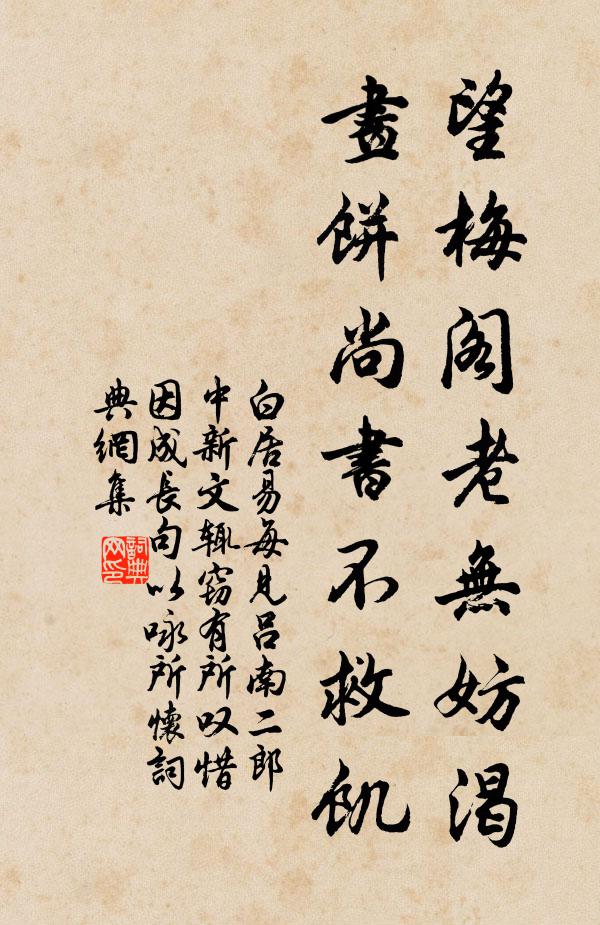 望梅阁老無妨渴
畫餅尚書不救飢
白居易每見呂南二郎
中新文辄窃有所叹惜
因成長句以咏所懷詞
典網集
詞典
网印